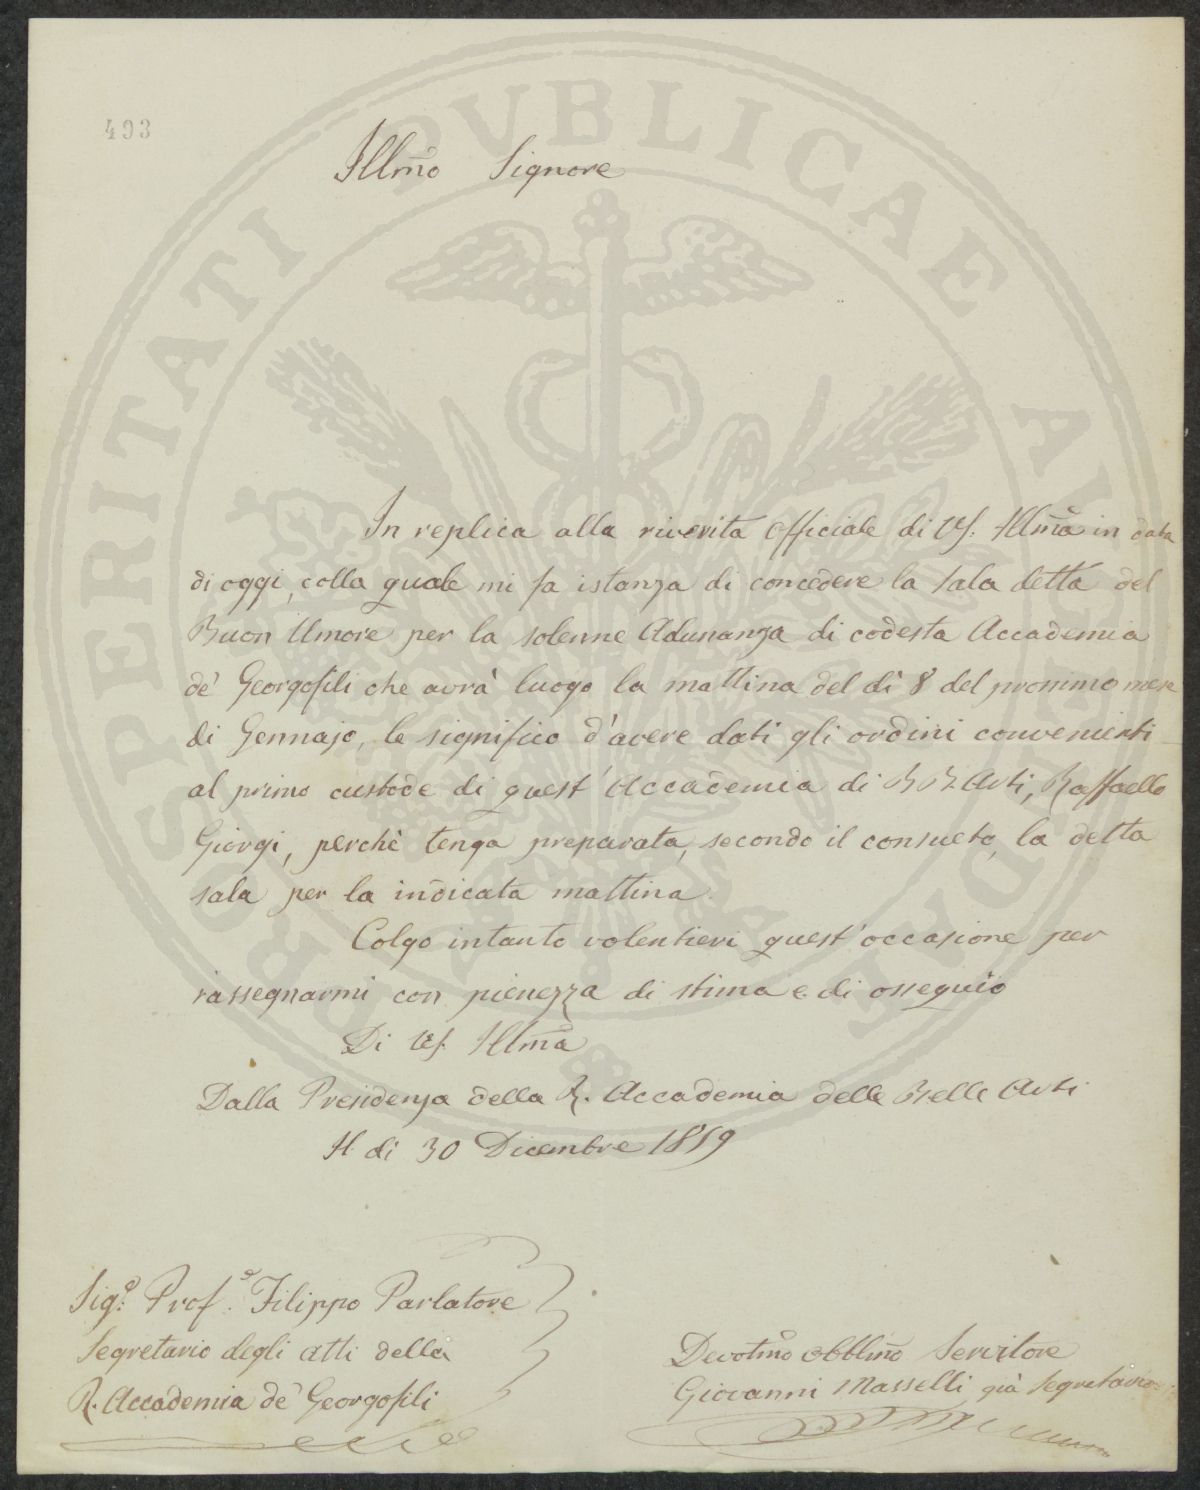 PROSPERITATI PUBLICAE AUGENDAE
493
Illmo Signore
In replica alla riverita Officiale di VS. Illma in data
di oggi, colla quale mi fa istanza di concedere la Sala detta del
Buon Umore per la solenne Adunanza di codesta Accademia
de' Georgofili che avrà luogo la mattina del dì 8 del prossimo mese
di Gennajo, le significo d'avere dati gli ordini convenienti
al primo custode di quest'Accademia di BB. Arti, Raffaello
Giorgi, perchè tenga preparata, secondo il consueto, la detta
sala per la indicata mattina.
Colgo intanto volentieri quest'occasione per
rassegnarmi con pienezza di stima e di ossequio
Di VS. Illma
Dalla Presidenza della R. Accademia delle Belle Arti
Il di 30 Dicembre 1859
Sige. Prof.e Filippo Parlatore
Segretario degli Atti della
R. Accademia de' Georgofili
Devotmo Obblmo Servitore
Giovanni Masselli già Segretario